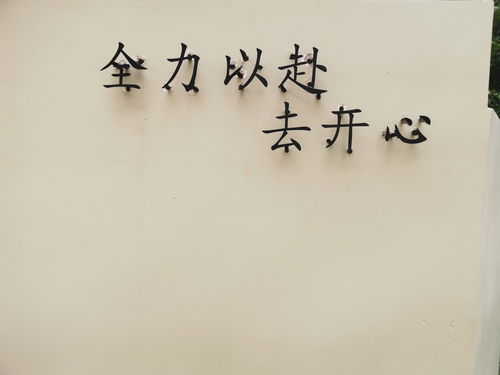 全力以赴
去开心